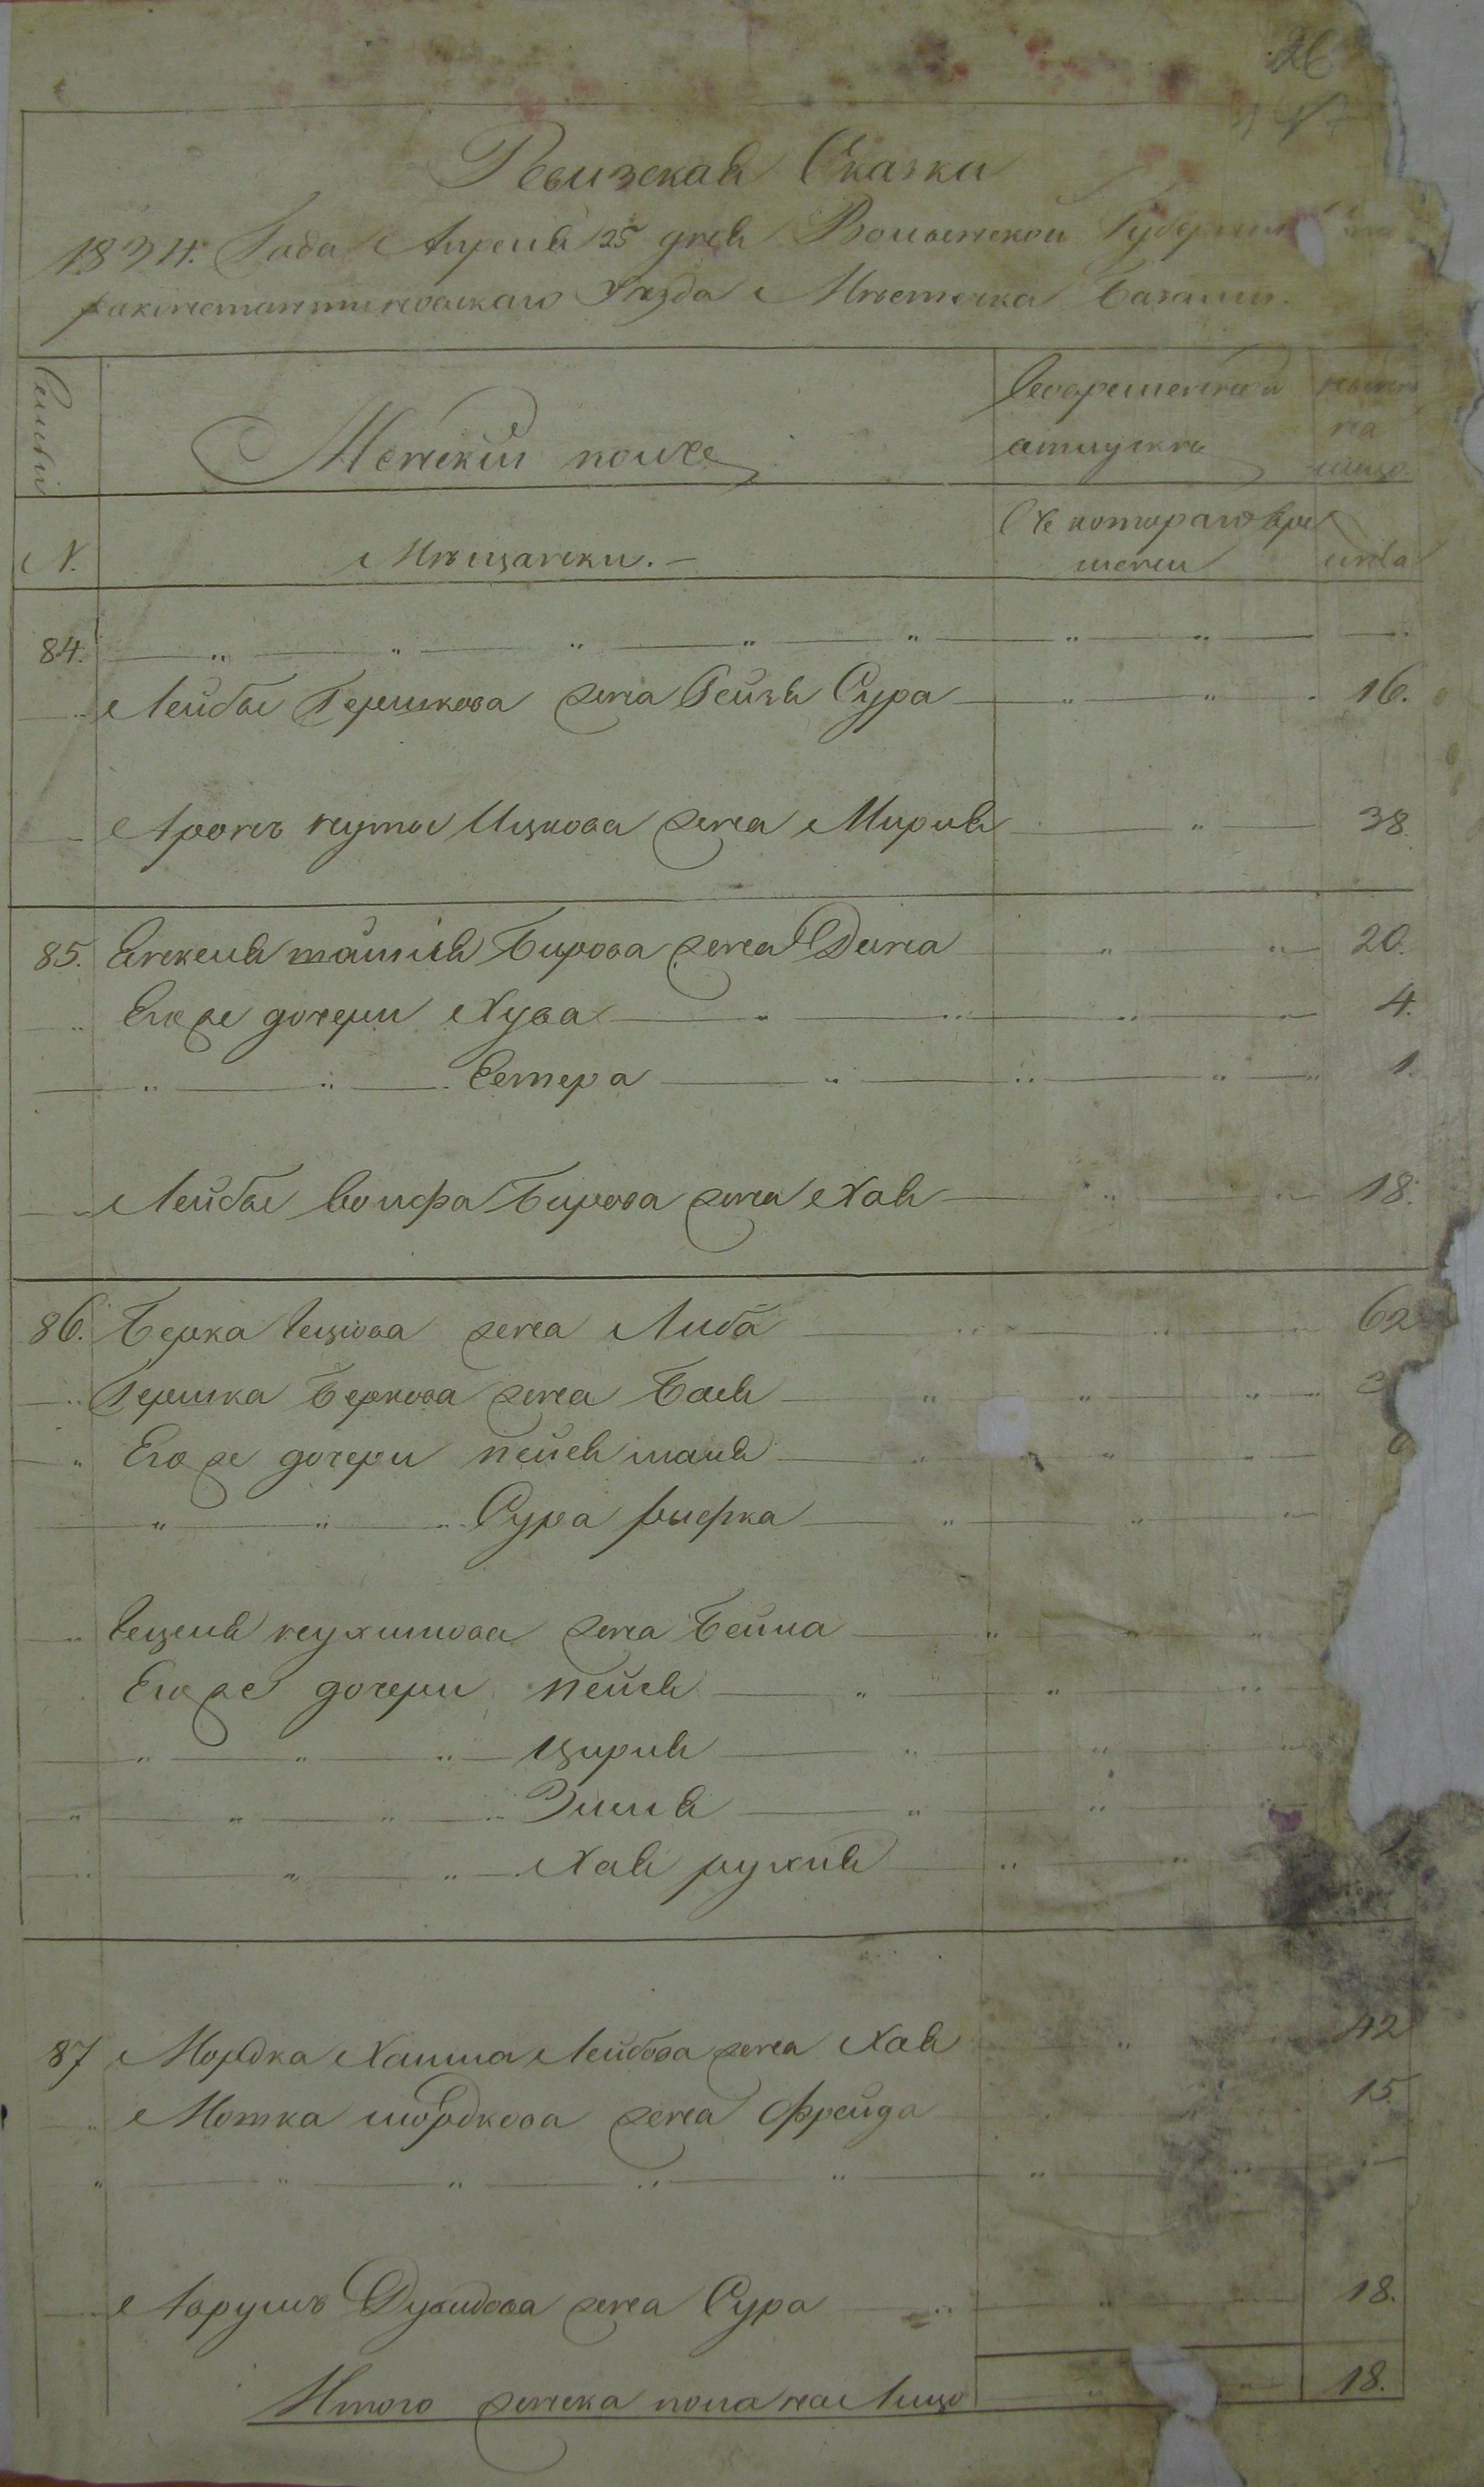 26
Ревизская Сказка
1834. Года Апреля 25 дня Волынской Губернии
Константиновскаго Уезда Местечка Базалии.
Семьи
Женский полъ
Во временной отлучке
ныне на лицо
N.
Мещански. —
Съ котораго времени
лета
84.
Лейбы Гершкова жена Бейзя Сура 16.
Аронъ нуты Ицкова жена Мирля 38
85. Бирова жена Дина 20.
Его же дочери Хува 4.
Естера 1.
Лейбы Волфа Бирова жена Хая 18.
86. Берка жена Либа 62
Гершка Беркова жена Бася 3
Его же дочери пейся маля
Сура рыфка
нухимова жена Бейла
Его же дочери пейся
Цирля
Зисля
Хая рухля
87 Мордка Хаима Лейбова жена Хая 42
Мотка мордкова жена Фрейда 15.
Дувидова жена Сура 18.
Итого женска пола на Лицо 18.